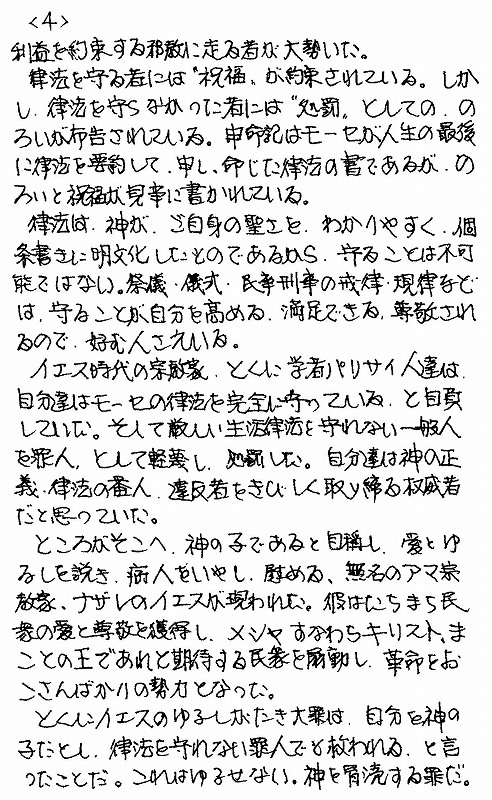 <4>
利益を約束する邪教に走る者が大勢いた。
律法を守る者には“祝福”が約束されている。しか
し、律法を守らなかった者には“処罰”としての、の
ろいが布告されている。申命記はモーセが人生の最後
に律法を要約して、申し、命じた律法の書であるが、の
ろいと祝福が見事に書かれている。
律法は、神が、ご自身の聖さを、わかりやすく、個
条書きに明文化したものであるから、守ることは不可
能ではない。祭儀・儀式・民事刑事の戒律・規律などと
は、守ることが自分を高める、満足できる、尊敬され
るので、好む人さえいる。
イエス時代の宗教家、とくに学者パリサイ人達は、
自分達はモーセの律法を完全に守っている、と自負
していた。そして厳しい生活律法を守れない一般人
を罪人、として軽蔑し、処罰した。自分達は神の正
義・律法の番人、違反者をきびしく取り締る権威者
だと思っていた。
ところがそこへ、神の子であると自称し、愛とゆ
るしを説き、病人をいやし、慰める、無名のアマ宗
教家、ナザレのイエスが現われた。彼はたちまち民
衆の愛と尊敬を獲得し、メシヤすなわちキリスト、ま
ことの王であれと期待する民衆を扇動し、革命をお
こさんばかりの勢力となった。
とくにイエスのゆるしがたき大罪は、自分を神の
子だとし、律法を守れない罪人でも救われる、と言
ったことだ。これはゆるせない。神を冒涜する罪だ。